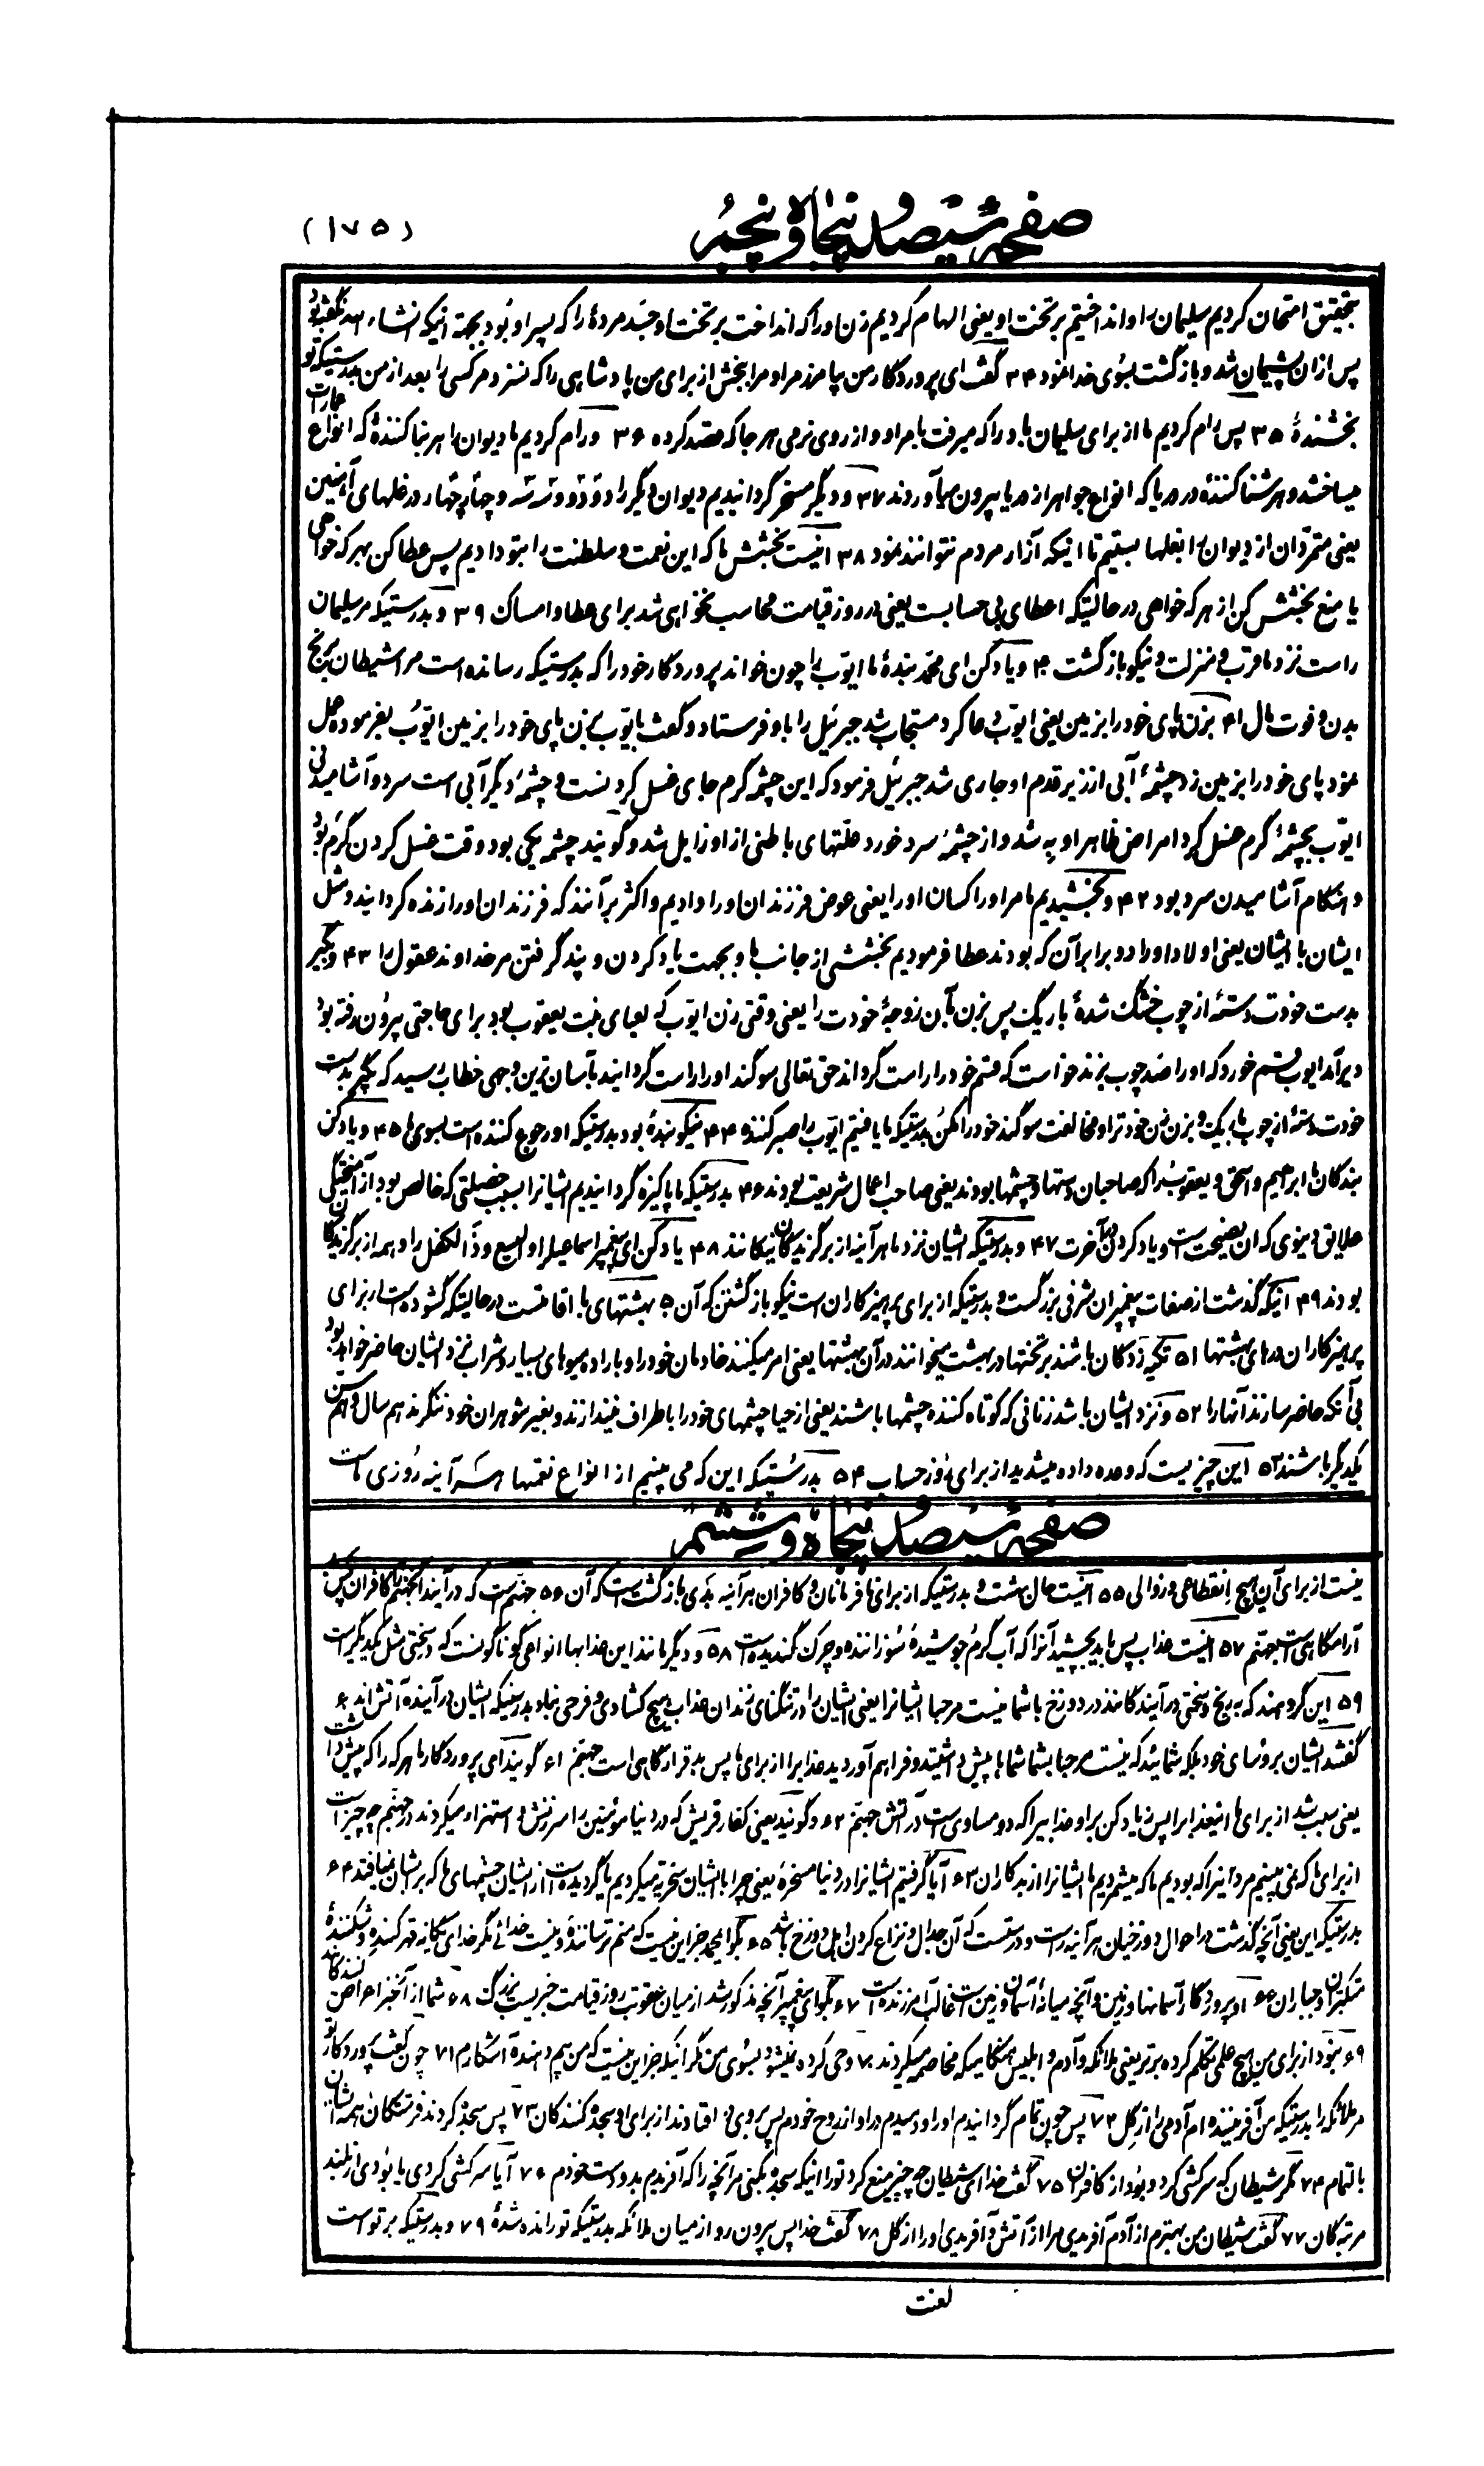 صفحهٔ سیصد و پنجاه و پنجم
(۱۷۵)
بتحقیق امتحان کردیم سلیمان را و انداختیم بر تخت او یعنی الهام کردیم زن او را که انداخت بر تخت او جسد مردهٔ را که پسر او بود بجهة اینکه انشاء الله نگفته بود
پس از ان پشیمان شد و بازگشت بسوی خدا نمود ۳۴ گفت ای پروردگار من بیامرز مرا و مرا ببخش از برای من پادشاهی را که نسزد مر کسی را بعد از من بدرستیکه تو
بخشندهٔ ۳۵ پس رام کردیم ما از برای سلیمان باد را که میرفت بامر او و از روی نرمی هر جا که قصد کرده ۳۶ و رام کردیم ما دیوان را هر بنا کنندهٔ که انواع عمارات
میساختند و هر شنا کنندهٔ در دریا که انواع جواهر از دریا بیرون میآوردند ۳۷ و دیگر مسخر گردانیدیم دیوان دیگر را دو دو و سه سه و چهار چهار در غلهای آهنین
یعنی متمردان از دیوان را بغلها بستیم تا اینکه آزار مردم نتوانند نمود ۳۸ اینست بخشش ما که این نعمت و سلطنت را بتو دادیم پس عطا کن بهر که خواهی
یا منع بخشش کن از هر که خواهی در حالتیکه اعطای بی حسابست یعنی در روز قیامت محاسب نخواهی شد برای عطا و امساک ۳۹ و بدرستیکه مر سلیمان
راست نزد ما قرب و منزلت و نیکو بازگشت ۴۰ و یاد کن ای محمد بندهٔ ما ایوب را چون خواند پروردگار خود را که بدرستیکه رسانده است مرا شیطان برنج
بدن و فوت مال ۴۱ بزن پای خود را بزمین یعنی ایوب دعا کرد مستجاب شد جبرئیل را باو فرستاد و گفت بایوب بزن پای خود را بزمین ایوب بفرموده عمل
نمود پای خود را بزمین زد چشمهٔ آبی از زیر قدم او جاری شد جبرئیل فرمود که این چشمه گرم جای غسل کردنست و چشمهٔ دیگر آبی است سرد و آشامیدنی
ایوب بچشمهٔ گرم غسل کرد امراض ظاهر او به شد و از چشمهٔ سرد خورد علتهای باطنی از او زایل شد و گویند چشمه یکی بود وقت غسل کردن گرم بود
و هنگام آشامیدن سرد بود ۴۲ و بخشیدیم ما مر او را کسان او را یعنی عوض فرزندان او را دادیم و اکثر بر آنند که فرزندان او را زنده گردانید و مثل
ایشان با ایشان یعنی اولاد او را دو برابر آن که بودند عطا فرمودیم بخششی از جانب ما و بجهت یاد کردن و پند گرفتن مر خداوند عقول را ۴۳ و بگیر
بدست خودت دستهٔ از چوب خشک شدهٔ باریک پس بزن بآن زوجهٔ خودت را یعنی وقتی زن ایوب که لعیای بنت یعقوب بود برای حاجتی بیرون رفته بود
دیر آمد ایوب قسم خورد که او را صد چوب بزند خواست که قسم خود را راست گرداند حق تعالی سوگند او را راست گردانید بآسان ترین وجهی خطاب رسید که بگیر بدست
خودت دستهٔ از چوب باریک و بزن زن خودت را و مخالفت سوگند خود را مکن بدرستیکه ما یافتیم ایوب را صبر کننده ۴۴ نیکو بندهٔ بود بدرستیکه او رجوع کننده است بسوی ما ۴۵ و یاد کن
بندگان ما ابراهیم و اسحق و یعقوب را که صاحبان دستها و چشمها بودند یعنی صاحب اعمال شریعت بودند ۴۶ بدرستیکه ما پاکیزه گردانیدیم ایشانرا بسبب خصلتی که خالص بود از آمیختگی
علایق دنیوی که ان نصیحت است و یاد کردن آخرت ۴۷ و بدرستیکه ایشان نزد ما هر آینه از برگزیدگان نیکانند ۴۸ یاد کن ای پیغمبر اسماعیل را و الیسع و ذا الکفل را و همه از برگزیدگان
بودند ۴۹ آنیکه گذشت از صفات پیغمبران شرفی بزرگست و بدرستیکه از برای پرهیزکاران است نیکو بازگشتن که آن ۵۰ بهشتهای با اقامتست در حالتیکه گشوده است از برای
پرهیزکاران درهای بهشتها ۵۱ تکیه زدگان باشند بر تختها در بهشت میخوانند در آن بهشتها یعنی امر میکنند خادمان خود را و باراده میوهای بسیار و شراب نزد ایشان حاضر خواهد بود
بی آنکه حاضر سازند آنها را ۵۲ و نزد ایشان باشد زنانی که کوتاه کننده چشمها باشند یعنی از حیا چشمهای خود را باطراف نیندازند و بغیر شوهران خود ننگرند هم سال و هم سن
یکدیگر باشند ۵۳ این چیزیست که وعده داده میشدید از برای روز حساب ۵۴ بدرستیکه این که می بینیم از انواع نعمتها هر آینه روزی ماست
صفحهٔ سیصد و پنجاه و ششم
نیست از برای آن هیچ انقطاعی و زوالی ۵۵ اینست حال بهشت و بدرستیکه از برای نافرمانان و کافران هر آینه بدی بازگشت است که آن ۵۶ جهنم است که در آیند آنجهنم را کافران پس
آرامگاهی است جهنم ۵۷ اینست عذاب پس باید بچشید آنرا که آب گرم جوشیدهٔ سوزاننده و چرک گندیده است ۵۸ و دیگر مانند این عذابها انواعی گوناگونست که در سختی مثل یکدیگر است
۵۹ این گروهند که به رنج و سختی در آیندگانند در دوزخ با شما نیست مرحبا ایشانرا یعنی ایشان را در تنگنای زندان عذاب هیچ گشادی و فرحی نباد بدرستیکه ایشان در آیندهٔ آتش اند ۶۰
گفتند ایشان برؤسای خود بلکه شمائید که نیست مرحبا بشما شماها پیش داشتید و فراهم آوردید عذاب را از برای ما پس بد قرارگاهی است جهنم ۶۱ گویند ای پروردگار ما هر که را که پیش داشت
یعنی سبب شد از برای ما اینعذاب را پس زیاد کن بر او عذابیرا که دو مساوی است در آتش جهنم ۶۲ و گویند یعنی کفار قریش که در دنیا مؤمنین را سرزنش و استهزاء میکردند در جهنم چه چیز است
از برای ما که نمی بینیم مردانیرا که بودیم ما که میشمردیم ما ایشانرا از بدکاران ۶۳ آیا گرفتیم ایشانرا در دنیا مسخره یعنی چرا با ایشان سخریه میکردیم یا گردیده است از ایشان چشمهای ما که بر ایشان نیافتد ۶۴
بدرستیکه این یعنی آنچه گذشت در احوال دوزخیان هر آینه راست و درستست که آن جدال و نزاع کردن اهل دوزخ باشد ۶۵ بگو ایمحمد جز این نیست که منم ترسانندهٔ و نیست خدائی مگر خدای یگانه قهر کننده و شکنندهٔ
متکبران و جباران ۶۶ او پروردگار آسمانها و زمین و آنچه میانهٔ آسمان و زمین است غالب آمرزنده است ۶۷ بگو ای پیغمبر آنچه مذکور شد از میان عقوبت روز قیامت خبریست بزرگ ۶۸ شما از آنخبر اعراض کنندگانید
۶۹ نبود از برای من هیچ علمی بتکلم گروه برتر یعنی ملائکه و آدم و ابلیس هنگامیکه مخاصمه میکردند ۷۰ وحی کرده نمیشود بسوی من مگر آنیکه جز این نیست که من بیم دهندهٔ آشکارم ۷۱ چون گفت پروردگار تو
مر ملائکه را بدرستیکه من آفریننده ام آدمی را از گِل ۷۲ پس چون تمام گردانیدم او را و دمیدم در او از روح خودم پس بروی در افتادند از برای او سجده کنندگان ۷۳ پس سجده کردند فرشتگان همه ایشان
بالتمام ۷۴ مگر شیطان که سرکشی کرد و بود از کافران ۷۵ گفت خدا ای شیطان چه چیز منع کرد تو را اینکه سجده بکنی مر آنچه را که آفریدم بدو دست خودم ۷۶ آیا سرکشی کردی یا بودی از بلند
مرتبه گان ۷۷ گفت شیطان من بهترم از آدم آفریدی مرا از آتش و آفریدی او را از گل ۷۸ گفت خدا پس بیرون رو از میان ملائکه بدرستیکه تو رانده شدهٔ ۷۹ و بدرستیکه بر تو است
لعنت